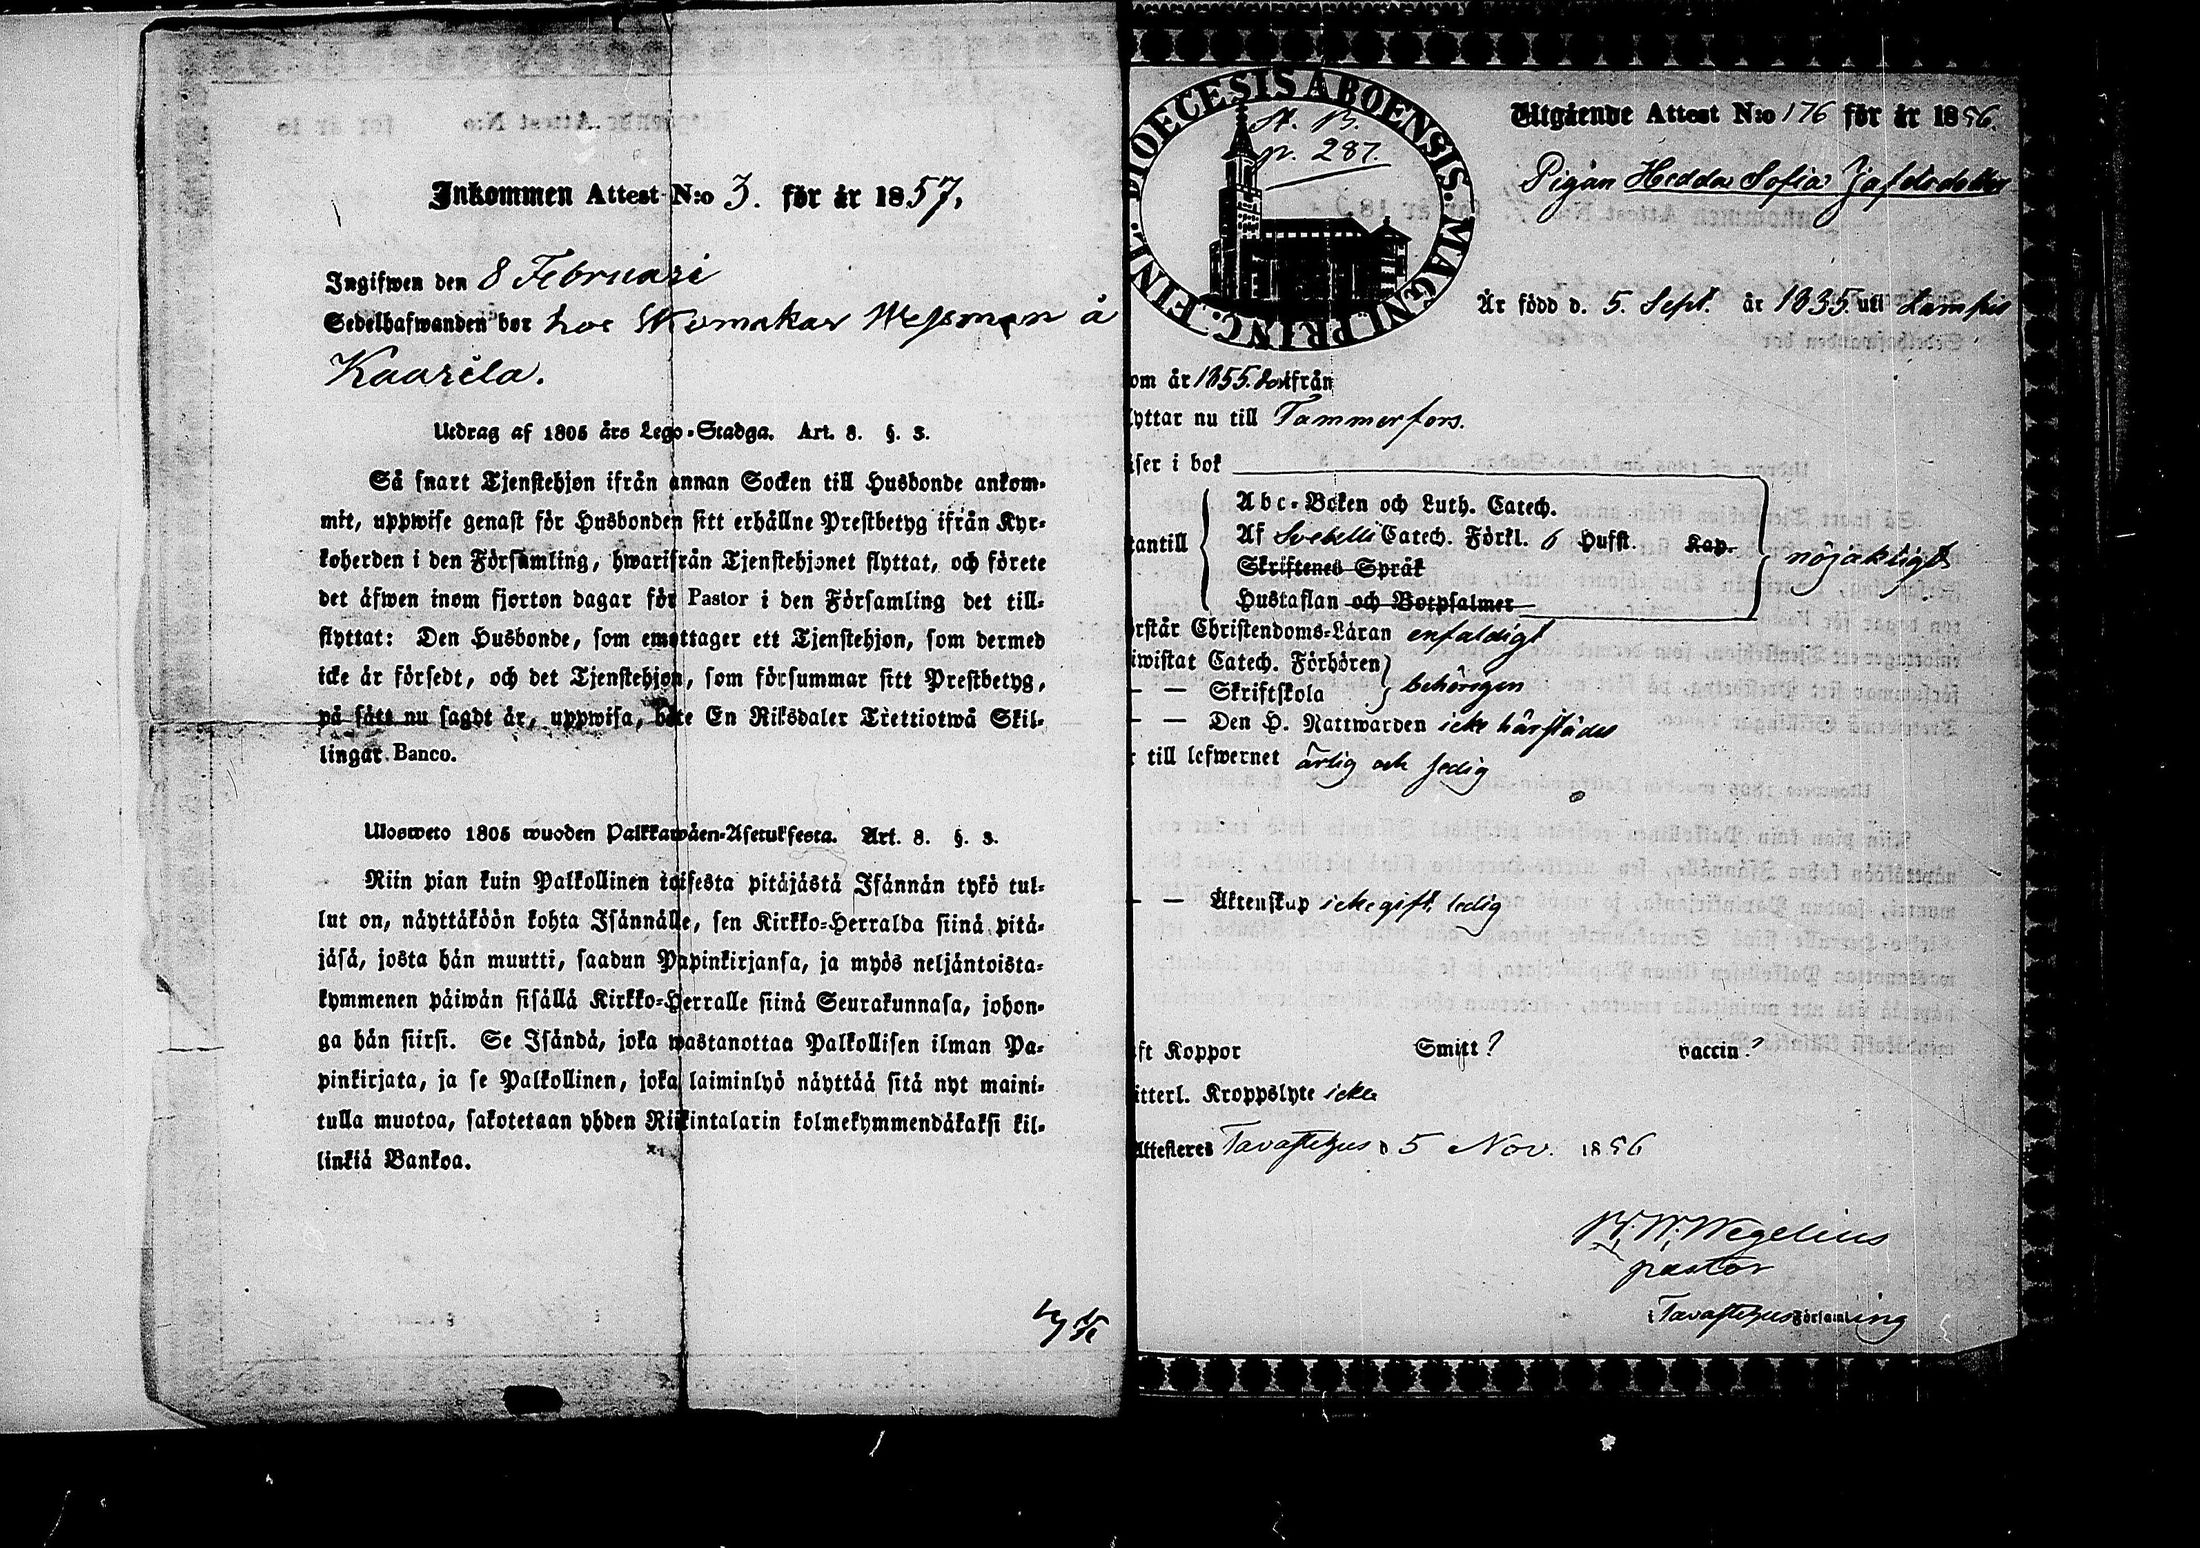 Inkommen Attest N:o 3. för år 1857.
Ingifwen den 8 Februari
Sedelhafwanden bor hos Skomakar Wessman å
Kaarila.
Utdrag af 1805 års Lego-Stadga. Art. 8. §. 3.
Så snart Tjenstehjon ifrån annan Socken till Husbonde ankom-
mit, uppwise genast för Husbonden sitt erhållne Prestbetyg ifrån Kyr-
koherden i den Församling, hwarifrån Tjenstehjonet flyttat, och förete
det äfwen inom fjorton dagar för Pastor i den Församling det till-
flyttat: Den Husbonde, som emottager ett Tjenstehjon, som dermed
icke är försedt, och det Tjenstehjon, som försummar sitt Prestbetyg,
på sätt nu sagdt är, uppwisa, böte En Riksdaler Trettiotwå Skil-
lingar Banco.
Ulosweto 1805 wuoden Palkkawäen-Asetuksesta. Art. 8. §. 3.
Niin pian kuin Palkollinen toisesta pitäjästä Isännän tykö tul-
lut on, näyttäköön kohta Isännälle, sen Kirkko-Herralda siinä pitä-
jäsä, josta hän muutti, saadun Papinkirjansa, ja myös neljäntoista-
kymmenen päiwän sisällä Kirkko-Herralle siinä Seurakunnasa, johon-
ga hän siirsi. Se Isändä, joka wastanottaa Palkollisen ilman Pa-
pinkirjata, ja se Palkollinen, joka laiminlyö näyttää sitä nyt maini-
tulla muotoa, sakotetaan yhden Riikintalarin kolmekymmendäkaksi kil-
linkiä Bankoa.
DIOECESIS ABOENSIS. MAGNI PRINC. FINL.
p. 287.
Utgående Attest N:o 176 för år 1856.
Pigan Hedda Sofia
Är född d. 5 Sept. år 1835. uti Lampis
om år 1855. ifrån
lyttar nu till Tammerfors.
äser i bok
Abc-Boken och Luth. Catech.
tantill Af Svebelii Catech. Förkl. 6 Hufst. Kap. nöjaktigt
Skriftenes Språk
Hustaflan och Botpsalmer
örstår Christendoms-Läran enfaldigt
iwistat Catech. Förhören
— — Skriftskola behörigen
— — Den H. Nattwarden icke härstädes
r till lefwernet ärlig och sedig
— — Äktenskap icke gift, ledig
ft Koppor Smitt? vaccin?
itterl. Kroppslyte icke
Attesteres Tavastehus d 5 Nov. 1856
Wegelius
pastor
i Tavastehus Församling